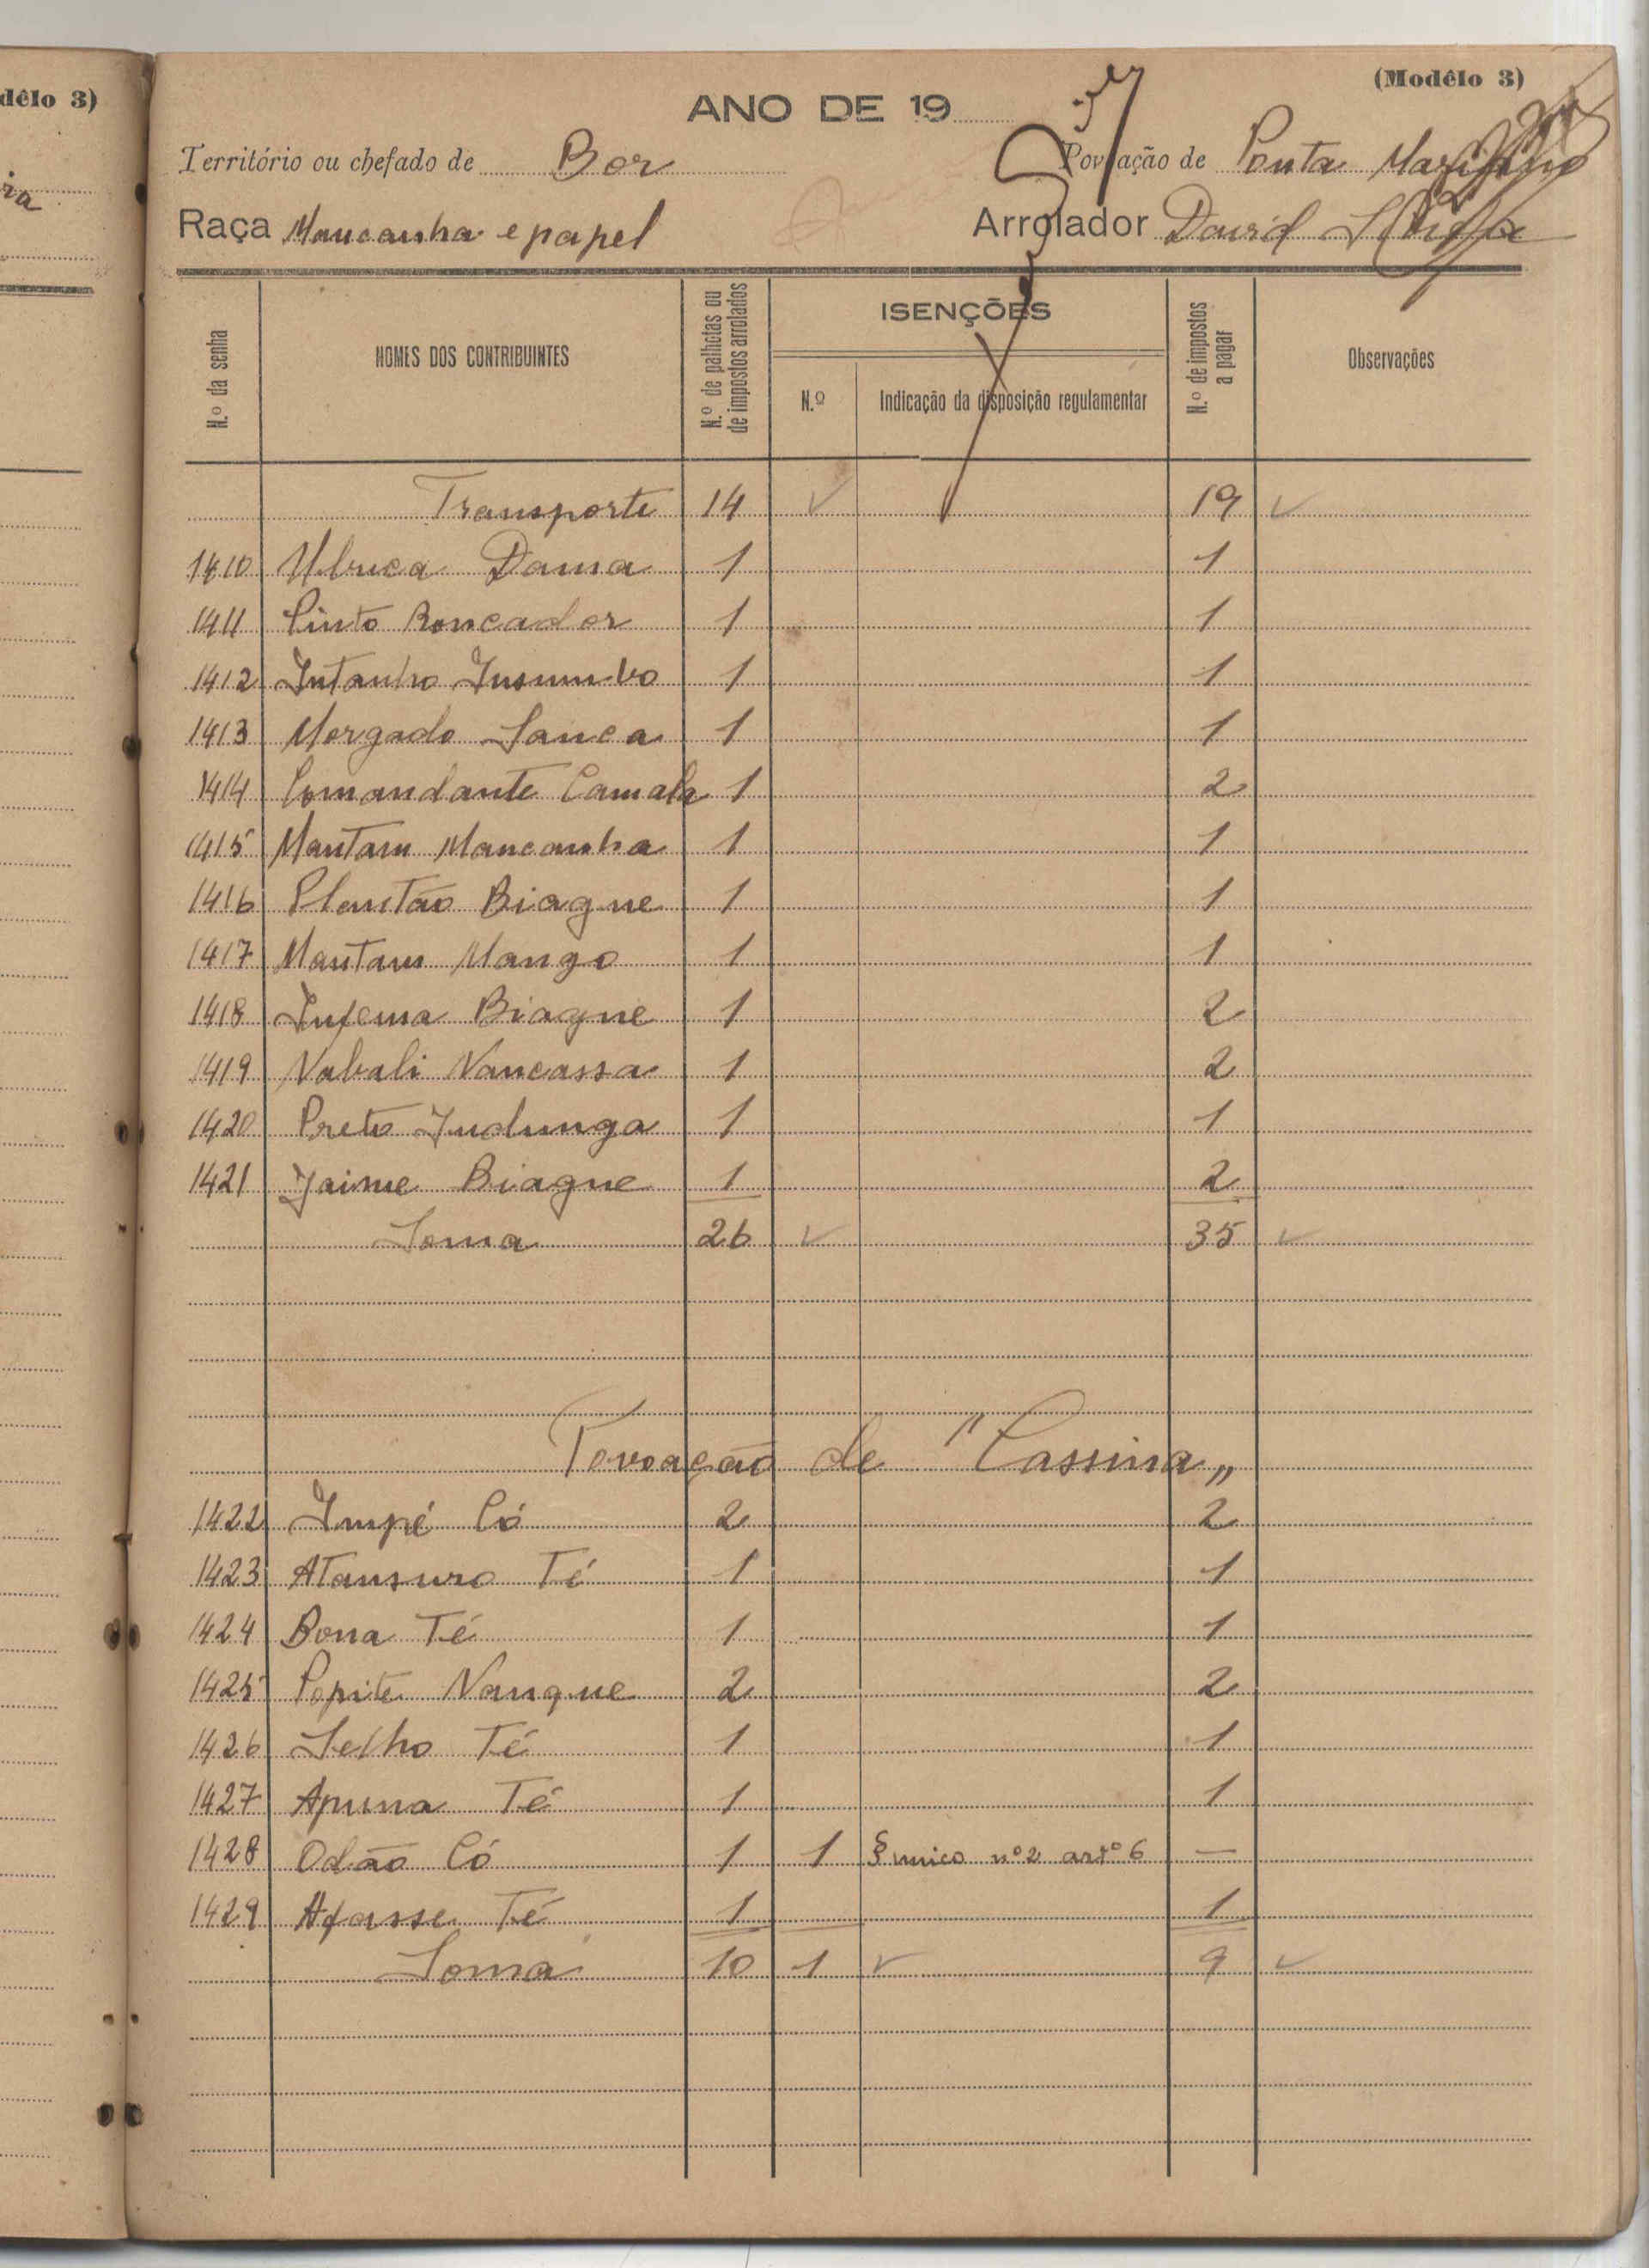 dêlo 3)
ia
(Modêlo 3)
ANO DE 19
Território ou chefado de Bor Povoação de Ponta
Raça Mancanha e papel Arrolador David
N.º da senha NOMES DOS CONTRIBUINTES N.º de palhotas ou de impostos arrolados ISENÇÕES N.º de impostos a pagar Observações
N.º Indicação da disposição regulamentar
Transporte 14 19
1410 Ubuca Dama 1 1
1411 Pinto Roncador 1 1
1412 Intanho Insumbo 1 1
1413 Morgado Sanca 1 1
1414 Comandante Camala 1 2
1415 Mantam Mancanha 1 1
1416 Plantão Biague 1 1
1417 Mantam Mango 1 1
1418 Infema Biague 1 2
1419 Nabali Nancassa 1 2
1420 Preto Indunga 1 1
1421 Jaime Biague 1 2
Soma 26 35
Povoação de "Cassima"
1422 Impé Có 2 2
1423 Atansuro Té 1 1
1424 Bona Té 1 1
1425 Popite Nanque 2 2
1426 Selho Té 1 1
1427 Apuna Té 1 1
1428 Odão Có 1 1 § unico nº 2 artº 6 —
1429 Afasse Té 1 1
Soma 10 1 9